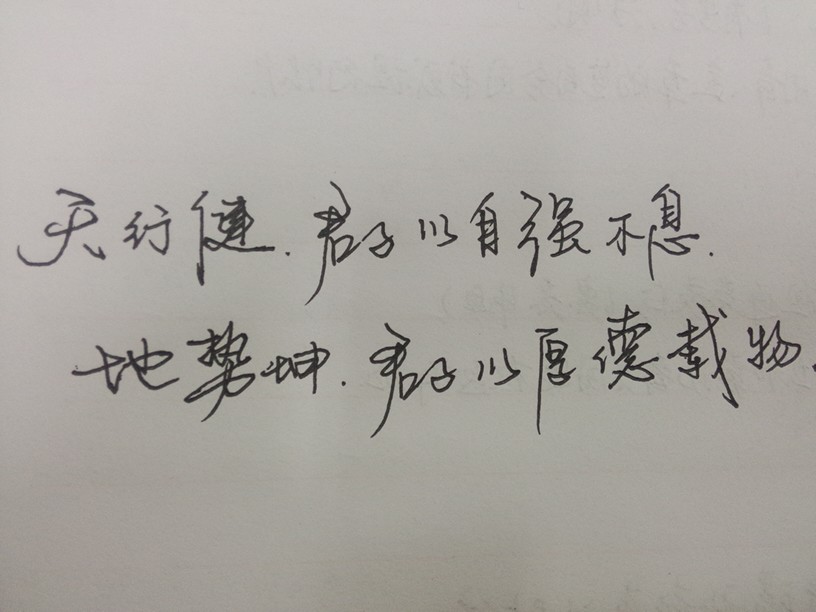 天行健.君子以自强不息.
地势坤.君子以厚德载物.